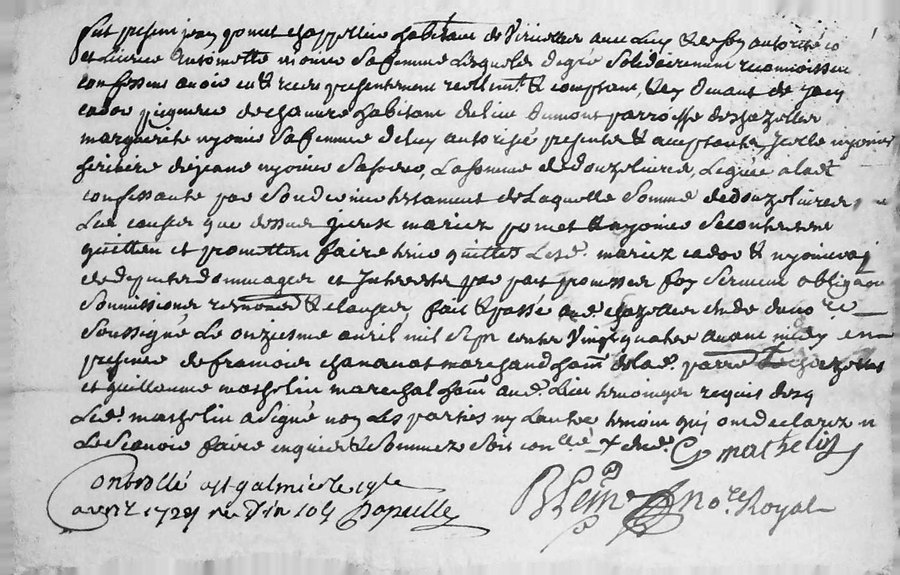 fut present jean pomet chappellier habitant de Viricelles avec luy & de son autorité
et licence Antoinette nyonier sa femme lesquels de gré solidairement reconnoissent
confessent avoir eu & receu presentement reellemt & comptant, en devant de jean
cador pigneur de chanvre habitant du lieu Dumont parroisse de chazelles
marguerite nyonier sa femme de luy autorisé presente & acceptante Icelle nyonier
heritiere de jeane nyonier sa soeur, la somme de douze livres, leguée a lad
confessante par son dernier testament de laquelle somme de douze livres
Les causes que dessus iceux mariez pomet & nyonier se contentent
quittent et promettent faire tenir quittes lesd. mariez cador & nyonier
de depents dommages et Interests par pact promesses foy serment obligaon
soumissions renonces & clauses, fait & passé aud chazelles etude du nore
soussigné Le onziesme avril mil sept cents vingt quatre avant midy en
presence de francois chananat marchand hant delad. parre de chazelles
et guillaume mathelin marechal hant aud. Lieu temoins requis
Led. mathelin a signé non Les parties ny L'autre temoin qui ont declarez ne
Le scavoir faire enquis & sommez soit conllé
G mathelin
Controllé a st galmier le 19e
avril 1724 Chapuelle
nore Royal